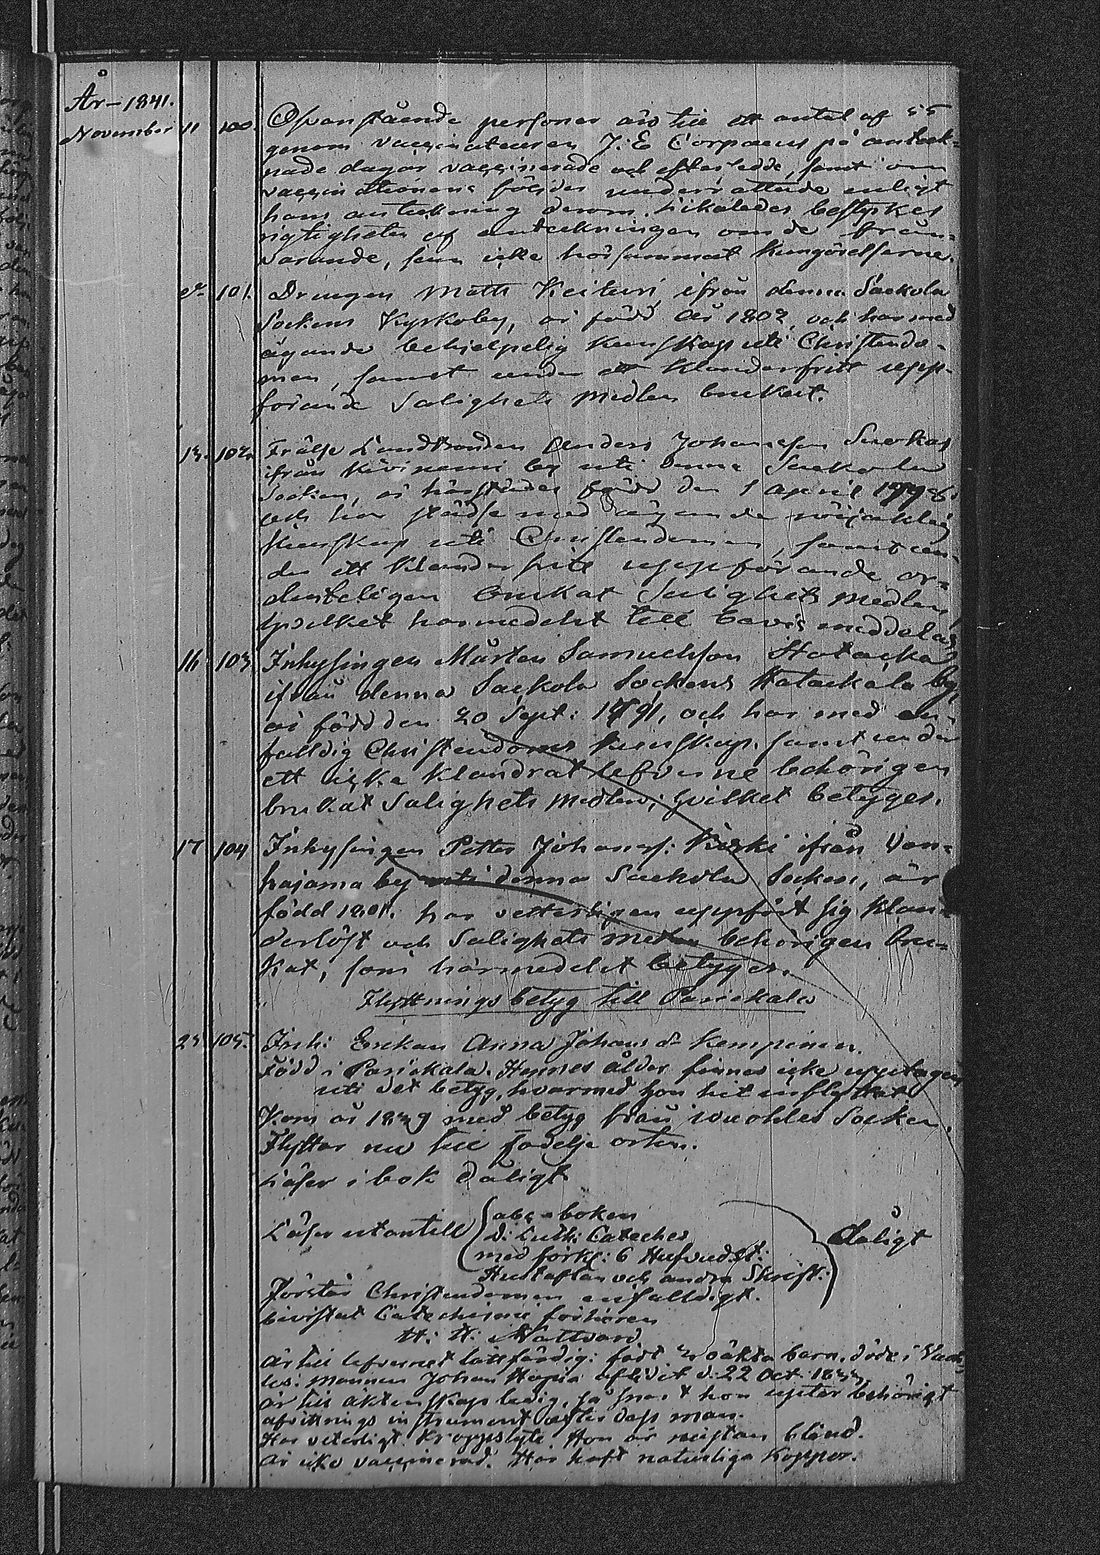 År - 1841.
November 11 100. Ofvanstående personer äro till ett antal af 55
genom vaccinateuren J: E Corpaeus på anteck-
nade dagar vaccinerade och efter sedde, samt om
vaccinationens följder underrättade enligt
hans anteckning derom. Likaledes bestyrkes
rigtigheten af anteckningen om de från-
varande, som icke hörsammat kungörelserne.
101. Drengen Matts Keituri ifrån denna Sackola
Sockens Kyrkoby, är född år 1802, och har med
ägande behielpelig kunskap uti Christendo-
men, samt under ett klanderfritt upp-
förande Salighets medlen brukat.
13. 102. Frälse Landbonden Anders Johansson
ifrån Kivinemi by uti denna Sackola
Socken, är härstädes född den 1 April 1798
och har städse med ägande
kunskap uti Christendomen, samt un-
der ett klanderfritt uppförande or-
denteligen brukat Salighets medlen,
hvilket härmedelst till bevis meddelas
16. 103. Inhysingen Mårten Samuelsson Hatacka
ifrån denna Sackola Sockens Hatackala by,
är född den 20 Sept: 1791, och har med en-
faldig Christendoms kunskap samt under
ett icke klandrat lefverne behörigen
brukat Salighets medlen; hvilket betyges.
17 104 Inhysingen Petter Johansf: Kiuski ifrån Van-
hajama by uti denna Sackola Socken, är
född 1801. har vetterligen uppfört sig klan-
derlöst och Salighets medlen behörigen bru-
kat, som härmedelst betyges.
Flyttnings betyg till Parickala
23 105. Inh: Enkan Anna Johans dr Kempinen.
Född i Parickala. Hennes ålder finnes icke upptagen
uti det betyg, hvarmed hon hit inflyttat
Kom år 1839 med betyg från Socken.
Flyttar nu till födelse orten.
Läser i bok dåligt
Läser utantill abc-boken
D: Luth: Cateches
med förkl: 6 Hufvudst:
Hustaflan och andra Skrift: dåligt
Förstår Christendomen enfaldigt.
bevistat Catechismi förhören
H: H: Nattvard
är till lefvernet lättfärdig: född 2 oäkta barn.
mannen Johan afledit d: 22 Oct:
är till äktenskap ledig, så snart hon upter behörigt
afvittrings instrument efter dess man.
Har veterligt kroppslyte Hon är nästan blind.
är icke vaccinerad. Har haft naturliga koppor.